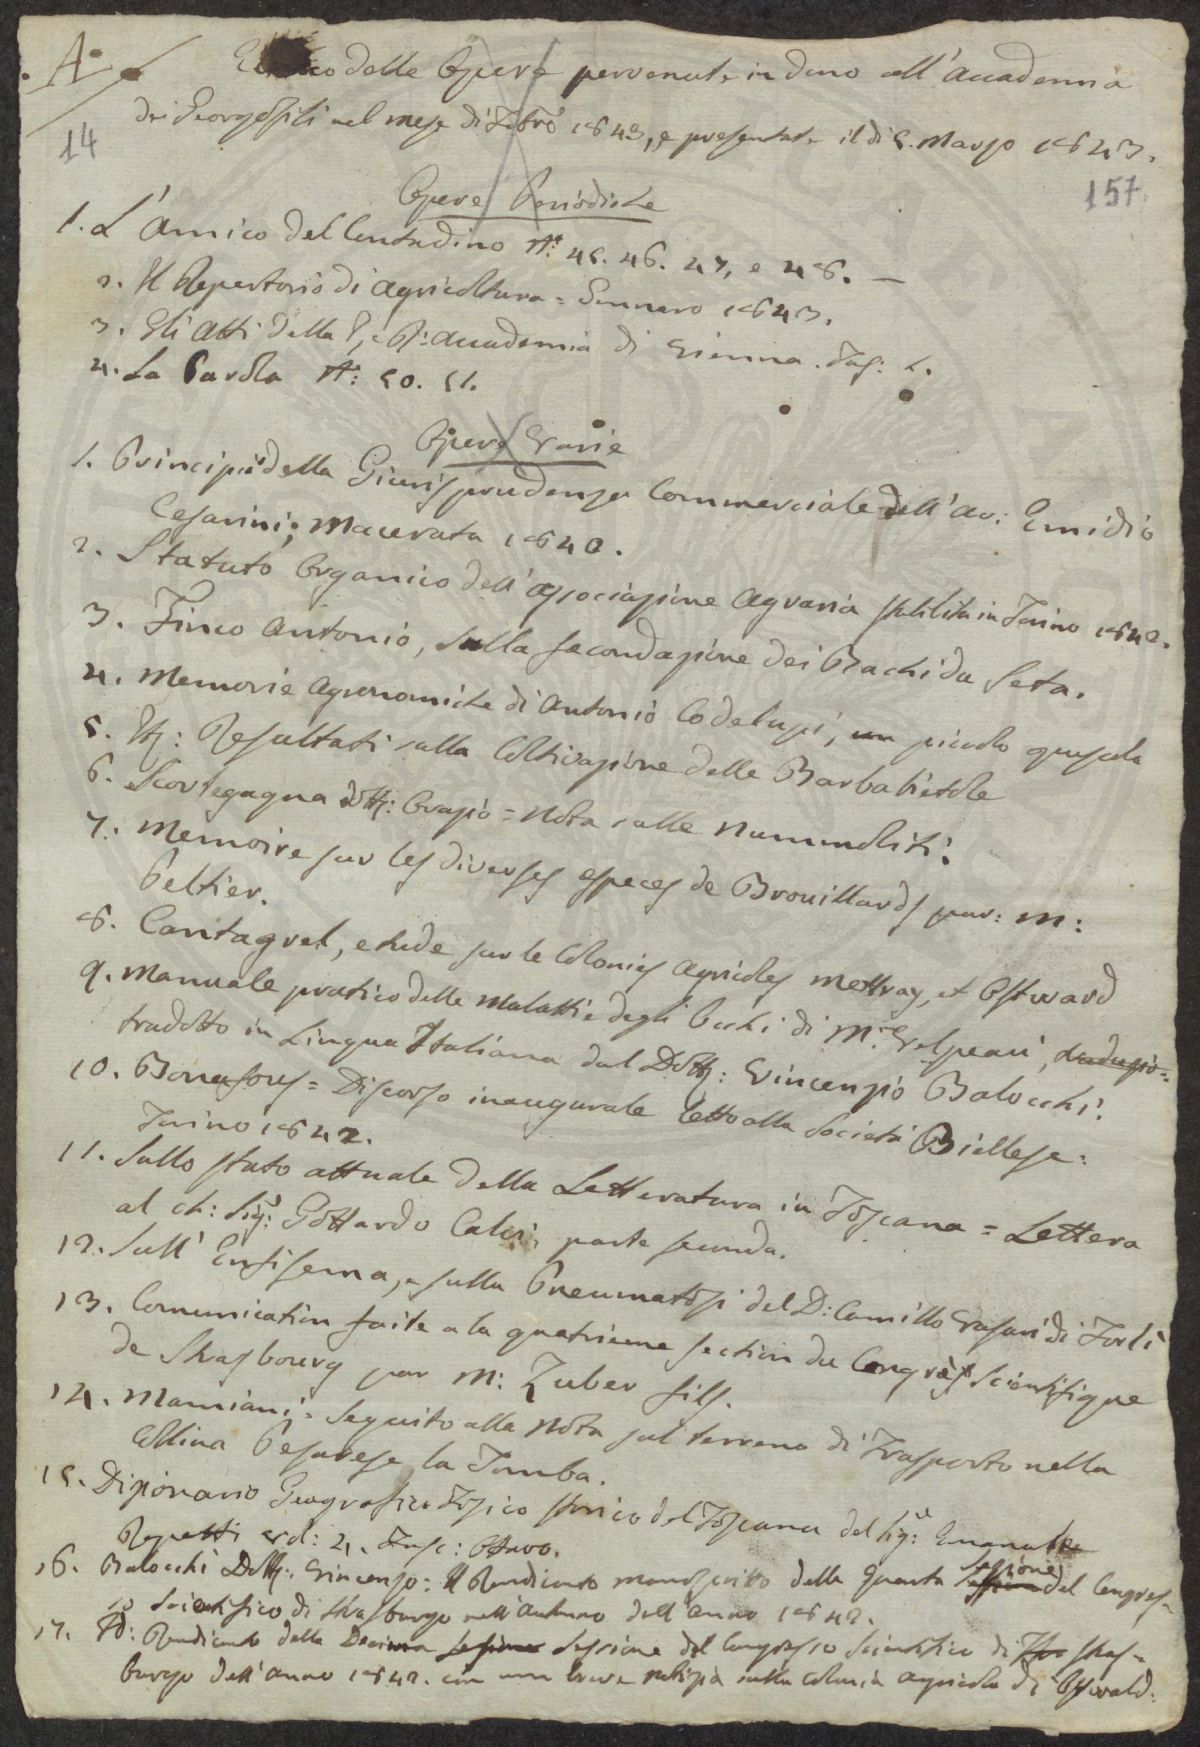 A.
Elenco delle Opere pervenute in dono all'Accademia
dei Georgofili nel mese di Febb.o 1843, e presentate il dì 5. Marzo 1843.
14
157
Opere Periodiche
1. L'Amico del Contadino N.° 45. 46. 47, e 48. —
2. Il Repertorio di Agricoltura = Gennaro 1843.
3. Gli Atti della I, e R: Accademia di Sienna. Fas: 2.
4. La Parola N.: 50. 51.
Opere Varie
1. Principii della Giurisprudenza Commerciale dell'Av: Emidio
Cesarini; Macerata 1840.
2. Statuto Organico dell'Associazione Agraria stabilita in Torino 1842.
3. Finco Antonio, Sulla fecondazione dei Bachi da Seta.
4. Memorie Agronomiche di Antonio Codelupi, un piccolo opuscolo
5. Resultati sulla Coltivazione delle Barbabietole
6. Scortegagna Dott: Orazio = Nota sulle Nummoliti.
7. Memoire sur les diverses especes de Brouillards par: M:
Peltier.
8. Cantagrel, etude sur le Colonies Agricoles Mettray, et Ostward
9. Manuale pratico delle Malattie degli Occhi di M.r Velpeau, traduzio=
tradotto in Lingua Italiana dal Dott: Vincenzio Balocchi.
10. Bonafous = Discorso inaugurale letto alla Società Biellese:
Torino 1842.
11. Sullo stato attuale della Letteratura in Toscana = Lettera
al Ch: Sig: Gottardo Calvi, parte seconda.
12. Sull'Enfisema, e sulla Pneumatosi del D: Camillo Versari di Forlì
13. Comunication faite a la quatrieme section du Congrès Scientifique
de Strasbourg par M: Zuber fils.
14. Mamiani = Seguito alla Nota sul terreno di Trasporto nella
Collina Pesarese la Tomba.
15. Dizionario Geografico Fisico storico del Toscana del Sig: Emanuele
Repetti vol: 4. Fasc: Ottavo.
16. Balocchi Dott: Vincenzo: Il Rendiconto manoscritto della Quarta Sezione del Congres=
so Scientifico di Strasburgo nell'Autunno dell'Anno 1842.
17. Id: Rendiconto della Decima Sessione del Congresso Scientifico di Stras=
burgo dell'Anno 1842. con una breve notizia sulla Colonia agricola di Ostwald.